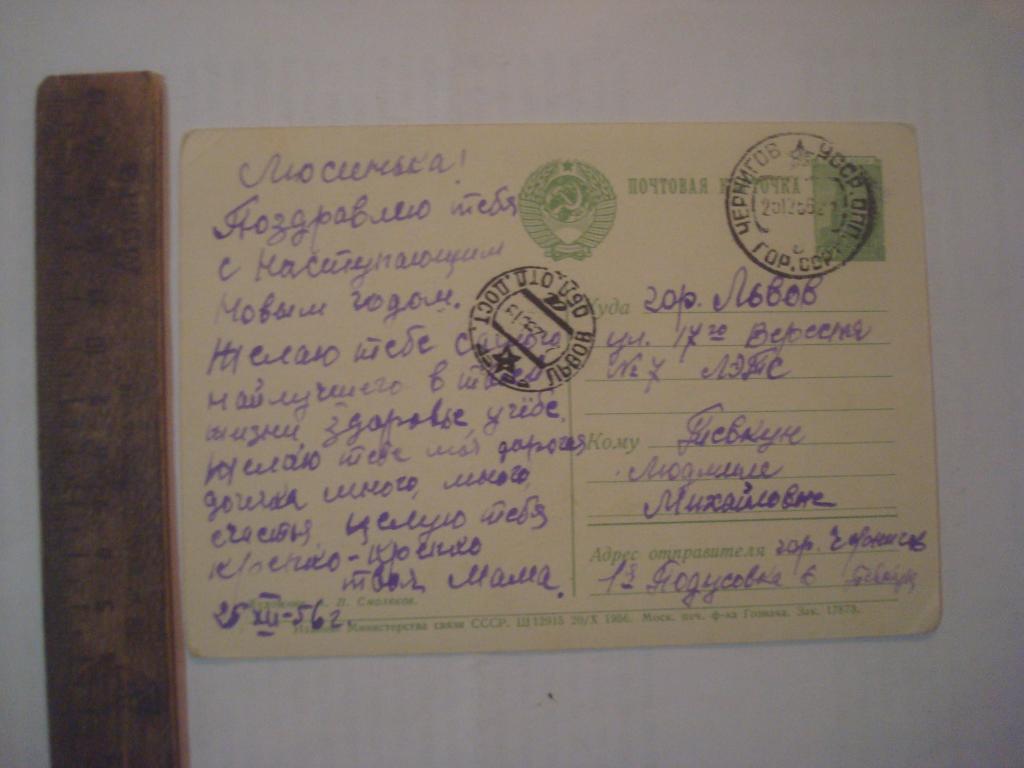 Люсинька!
Поздравляю тебя
с наступающим
Новым годом.
Желаю тебе самого
найлучшего в твоей
жизни, здоровье, учёбе,
Желаю тебе моя дорогая
дочька много, много,
счастья, целую тебя
крепко-крепко
твоя Мама.
25 XII-56 г.
ПОЧТОВАЯ КАРТОЧКА
ЧЕРНИГОВ УССР
ГОР.
ЛЬВОВ ОБЛ.ОТД.ДОСТ.
Куда гор. Львов
ул. 17го Вересня
№ 7 ЛЭТС
Кому Певкун
Людмиле
Михайловне
Адрес отправителя гор. Чернигов
Подусовка 6
Смоляков.
Министерства связи СССР. Ш 12915 20/X 1956. Моск. печ. ф-ка Гознака. Зак. 17873.